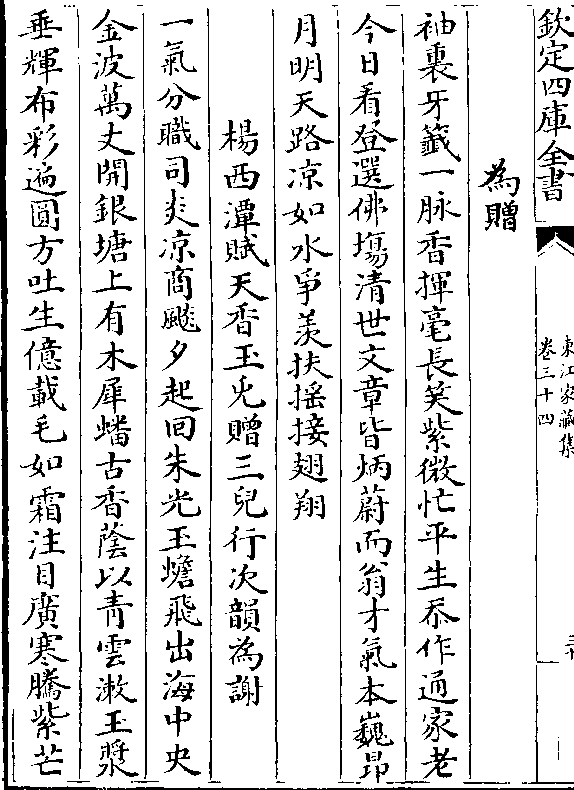 欽定四庫全書
東江家藏集
卷三十四
為贈
袖裏牙籤一脉香揮毫長笑紫微忙平生忝作通家老
今日看登選佛塲清世文章皆炳蔚而翁才氣本巍昂
月明天路凉如水爭羡扶揺接翅翔
楊西潭賦天香玉兎贈三兒行次韻為謝
一氣分職司炎凉商飈夕起回朱光玉蟾飛出海中央
金波萬丈開銀塘上有木犀蟠古香蔭以青雲漱玉漿
垂輝布彩遍圓方吐生億載毛如霜注目廣寒騰紫芒